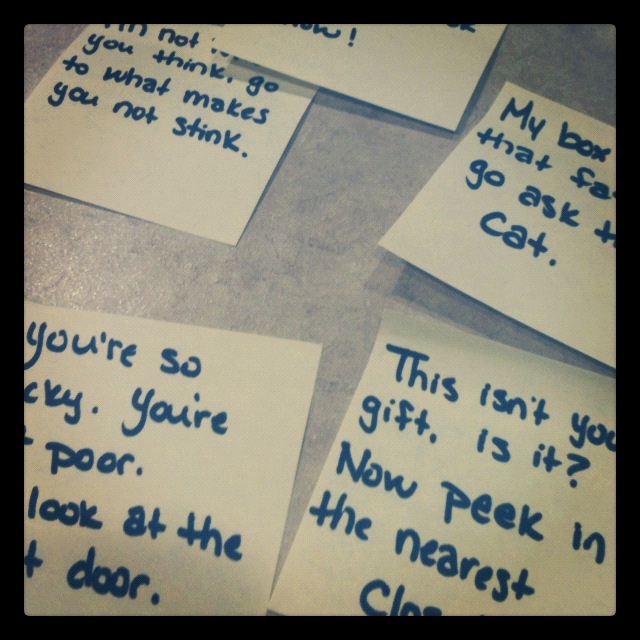 I'm not
you think, go
to what makes
you not stink.
now!
My box
that
go ask
cat.
you're so
You're
poor.
look at the
door.
This isn't
gift. is it?
Now peek in
the nearest